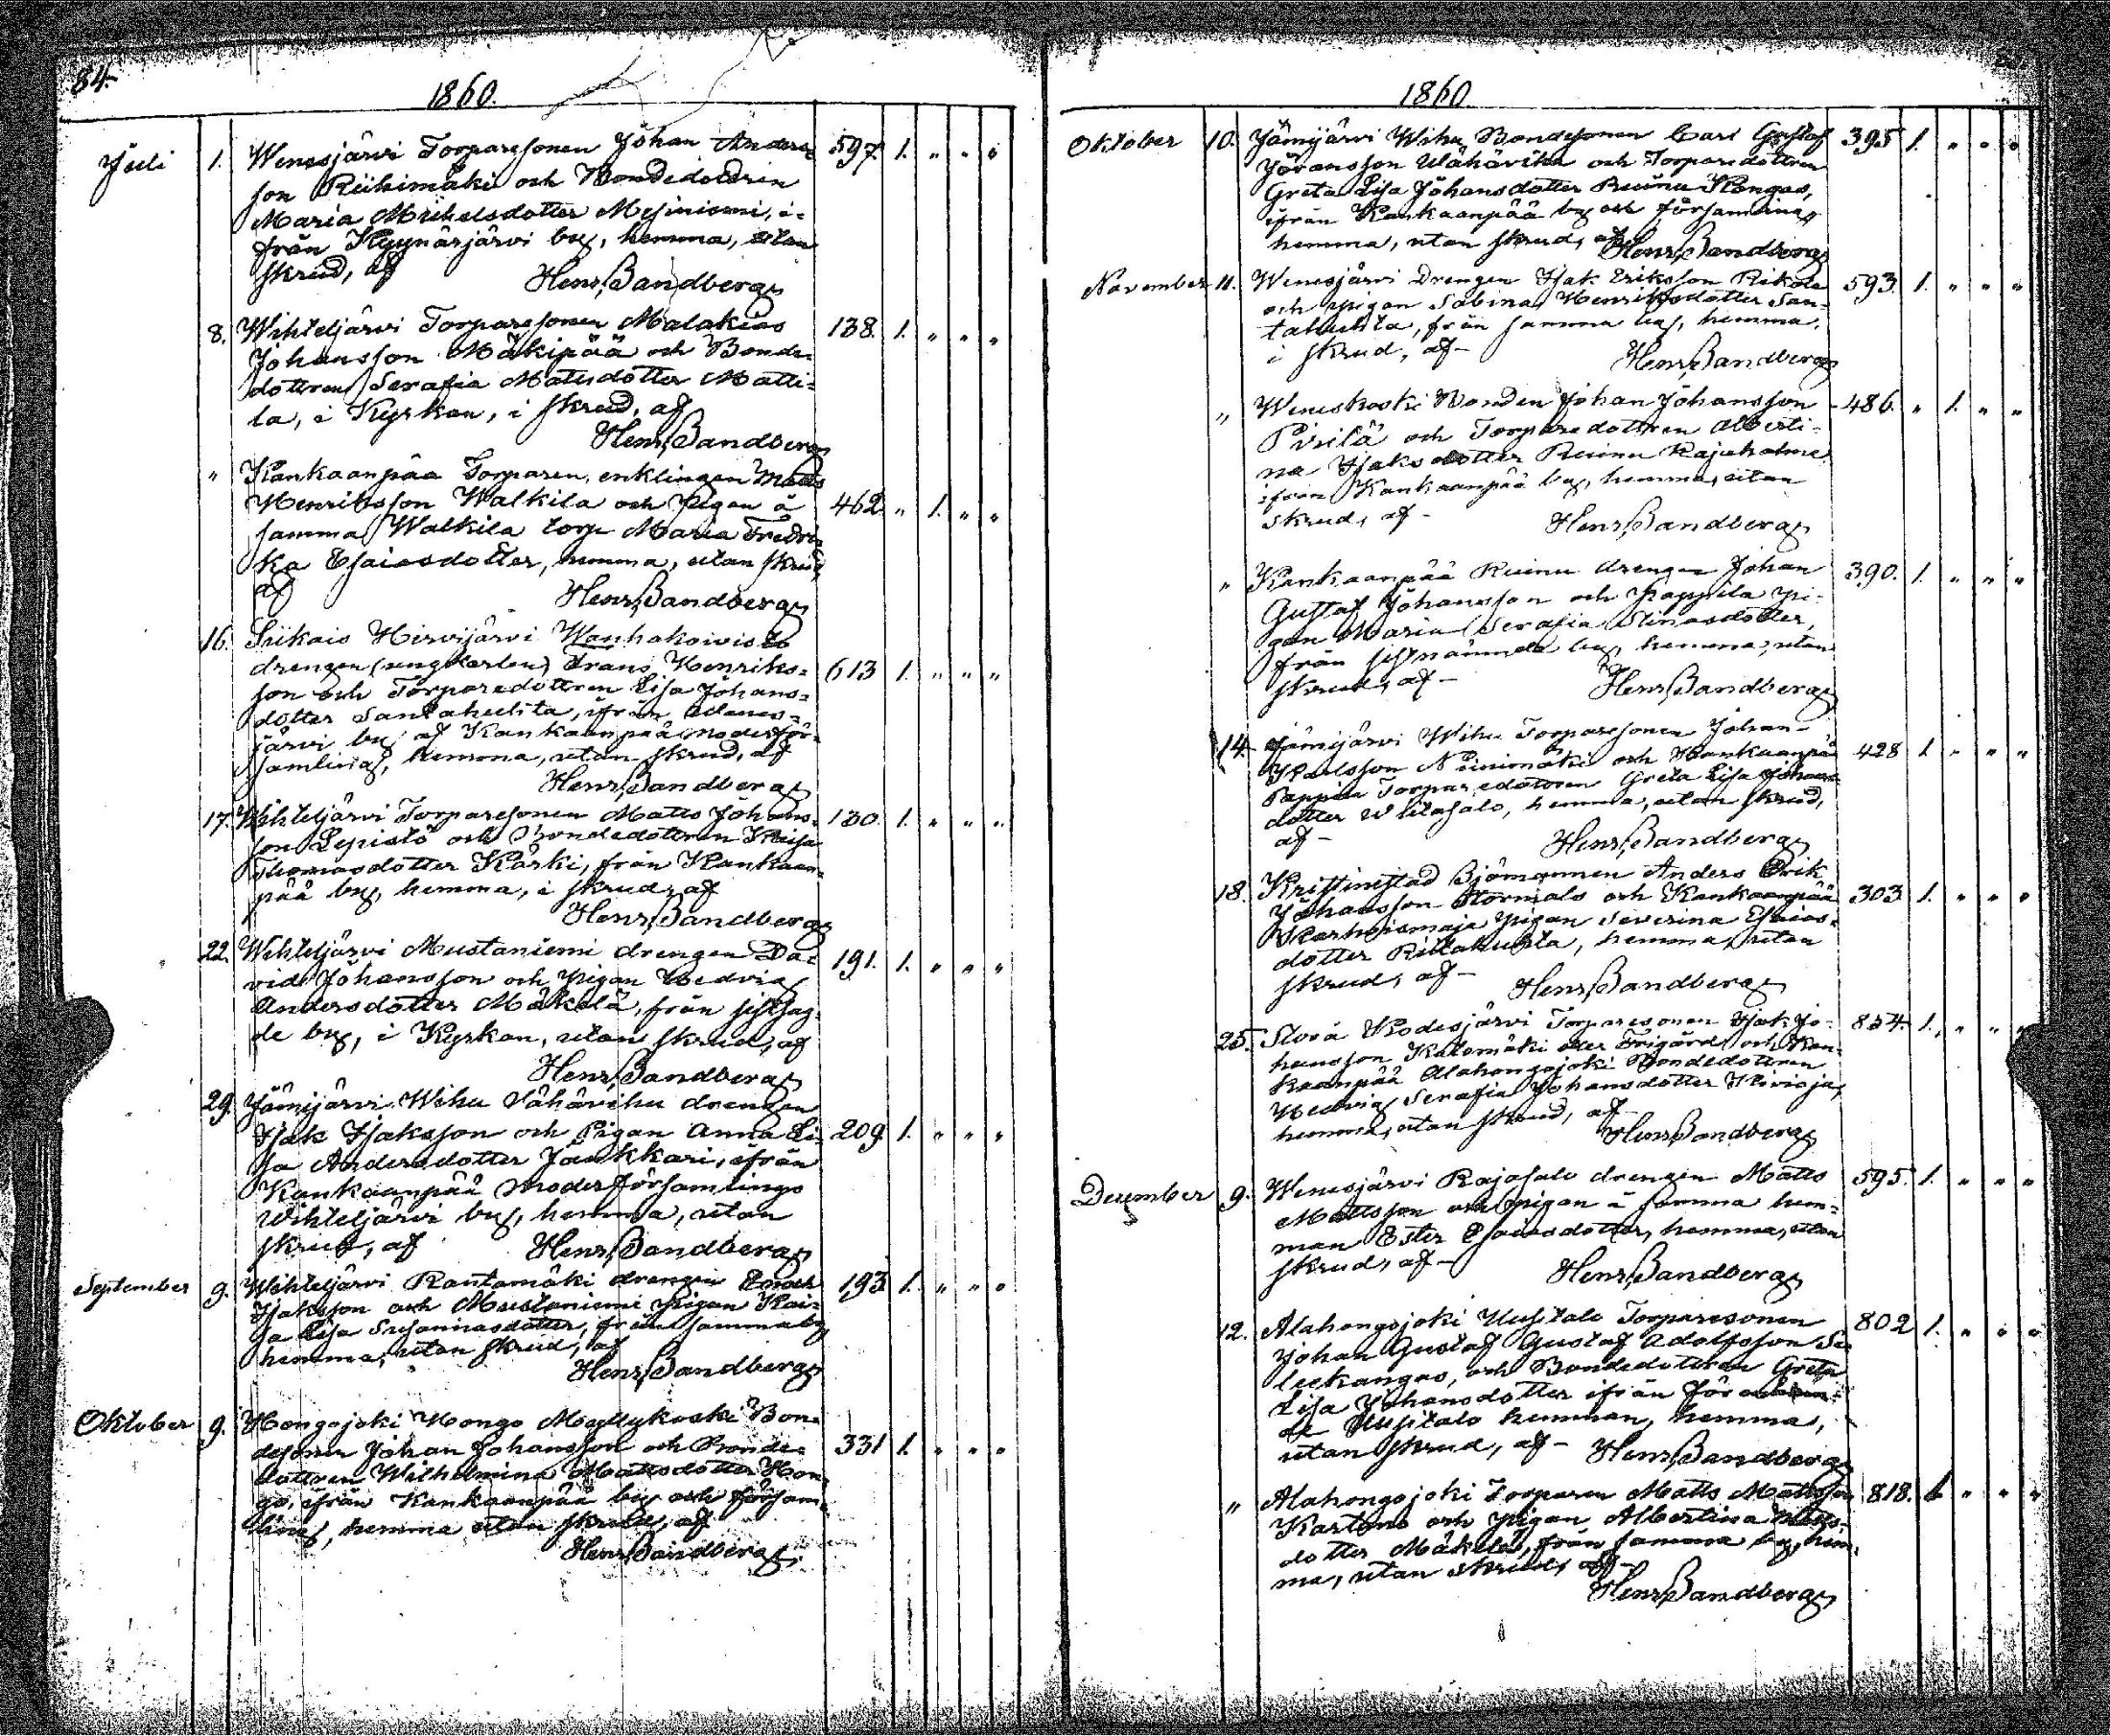 84.
1860.
Juli 1. Wenesjärvi Torparesonen Johan Anders=
son Riihimäki och Bondedottren
Maria Michelsdotter Mesiniemi, i=
från Kyynärjärvi by, hemma, utan
skrud, af
Henr. Sandberg 597. 1. " " "
8. Wihteljärvi Torparesonen Malakias
Johansson Mäkipää och Bonde=
dottren Serafia Matsdotter Matti=
la, i Kyrkan, i skrud, af
Henr. Sandberg 138. 1. " " "
" Kankaanpää Torparen, enklingen Matts
Henriksson Walkila och Pigan å
samma Walkila torp Maria Fredri=
ka Esaiasdotter, hemma, utan skrud,
af
Henr. Sandberg 462. " 1. " "
16. Siikais Hirvijärvi Wanhakoivisto
drengen (ungkarlen) Frans Henriks=
son och Torparedottren Lisa Johans=
dotter Santahuhta, ifrån Wenes=
järvi by af Kankaanpää moderför=
samling, hemma, utan skrud, af
Henr. Sandberg 613 1. " " "
17. Wihteljärvi Torparesonen Matts Johans=
son Lepistö och Bondedottren Kaisa
Thomasdotter Kärki, från Kankaan=
pää by, hemma, i skrud, af
Henr. Sandberg 130. 1. " " "
22. Wihteljärvi Mustaniemi drengen Da=
vid Johansson och Pigan Hedvig
Andersdotter Mäkelä, från sistsag=
de by, i Kyrkan, utan skrud, af
Henr. Sandberg 191. 1. " " "
29. Jämijärvi Wihu Sähävihu drengen
Isak Isaksson och Pigan Anna Li=
sa Andersdotter Jankkari, ifrån
Kankaanpää Moderförsamlings
Wihteljärvi by, hemma, utan
skrud, af Henr. Sandberg 209. 1. " " "
September 9. Wihteljärvi Rantamäki drengen Enoch
Isaksson och Mustaniemi Pigan Kai=
sa Lisa Susannasdotter, från samma by
hemma, utan skrud, af
Henr. Sandberg 193 1. " " "
Oktober 9. Hongojoki Hongo Myllykoski Bon=
desonen Johan Johansson och Bonde=
dottren Wilhelmina Mattsdotter Hon=
go, ifrån Kankaanpää by och försam=
ling, hemma utan skrud, af
Henr. Sandberg 331 1. " " "
1860
Oktober 10. Jämijärvi Wihu Bondesonen Carl Gustaf
Jöransson och Torparedottren
Greta Lisa Johansdotter Ruinu Kangas,
ifrån Kankaanpää by och församling,
hemma, utan skrud, af
Henr. Sandberg 395 1. " " "
November 11. Wenesjärvi Drengen Isak Eriksson Rikola
och Pigan Sabina Henriksdotter San=
tahuhta, från samma by, hemma,
i skrud, af -
Henr. Sandberg 593. 1. " " "
" Weneskoski Bonden Johan Johansson
Pirilä och Torparedottren Alberti=
na Isaksdotter Ruinu
ifrån Kankaanpää by, hemma, utan
skrud, af -
Henr. Sandberg 486. " 1. " "
" Kankaanpää Ruinu drengen Johan
Gustaf Johansson och Pappila Pi=
gan Maria Serafia Stinasdotter,
från sistnämnda by, hemma, utan
skrud, af -
Henr. Sandberg 390. 1. " " "
14. Jämijärvi Wihu Torparesonen Johan
Karlsson Niinimäki och Kankaanpää
Pappila Torparedottren Greta Lisa Johans=
dotter Ylitasalo, hemma, utan skrud,
af -
Henr. Sandberg 428 1 " " "
18. Kristinestad Sjömannen Anders Erik
Johansson Stormals och Kankaanpää
Karhoismaja Pigan Severina Esaias=
dotter Riitahuhta, hemma, utan
skrud, af -
Henr. Sandberg 303. 1. " " "
25. Storå Rodesjärvi Torparesonen Isak Jo=
hansson Katomäki eller Frigård och Kan=
kaanpää Alahongojoki Bondedottren
Hedvig Serafia Johansdotter Kivioja,
hemma, utan skrud, af -
Henr. Sandberg 854. 1. " " "
December 9. Wenesjärvi Rajasalo drengen Matts
Mattsson och pigan å samma hem=
man Ester Esaiasdotter, hemma, utan
skrud, af -
Henr. Sandberg 595. 1. " " "
12. Alahongojoki Uusitalo Torparesonen
Johan Gustaf Gustaf Adolfsson Se=
leekangas, och Bondedottren Greta
Lisa Johansdotter ifrån
Uusitalo hemman, hemma,
utan skrud, af - Henr. Sandberg 802 1. " " "
" Alahongojoki Torparen Matts Mattsson
Kartano och Pigan Albertina Matts=
dotter Mäkelä, från samma by, hem=
ma, utan skrud, af -
Henr. Sandberg 818. 1 " " "